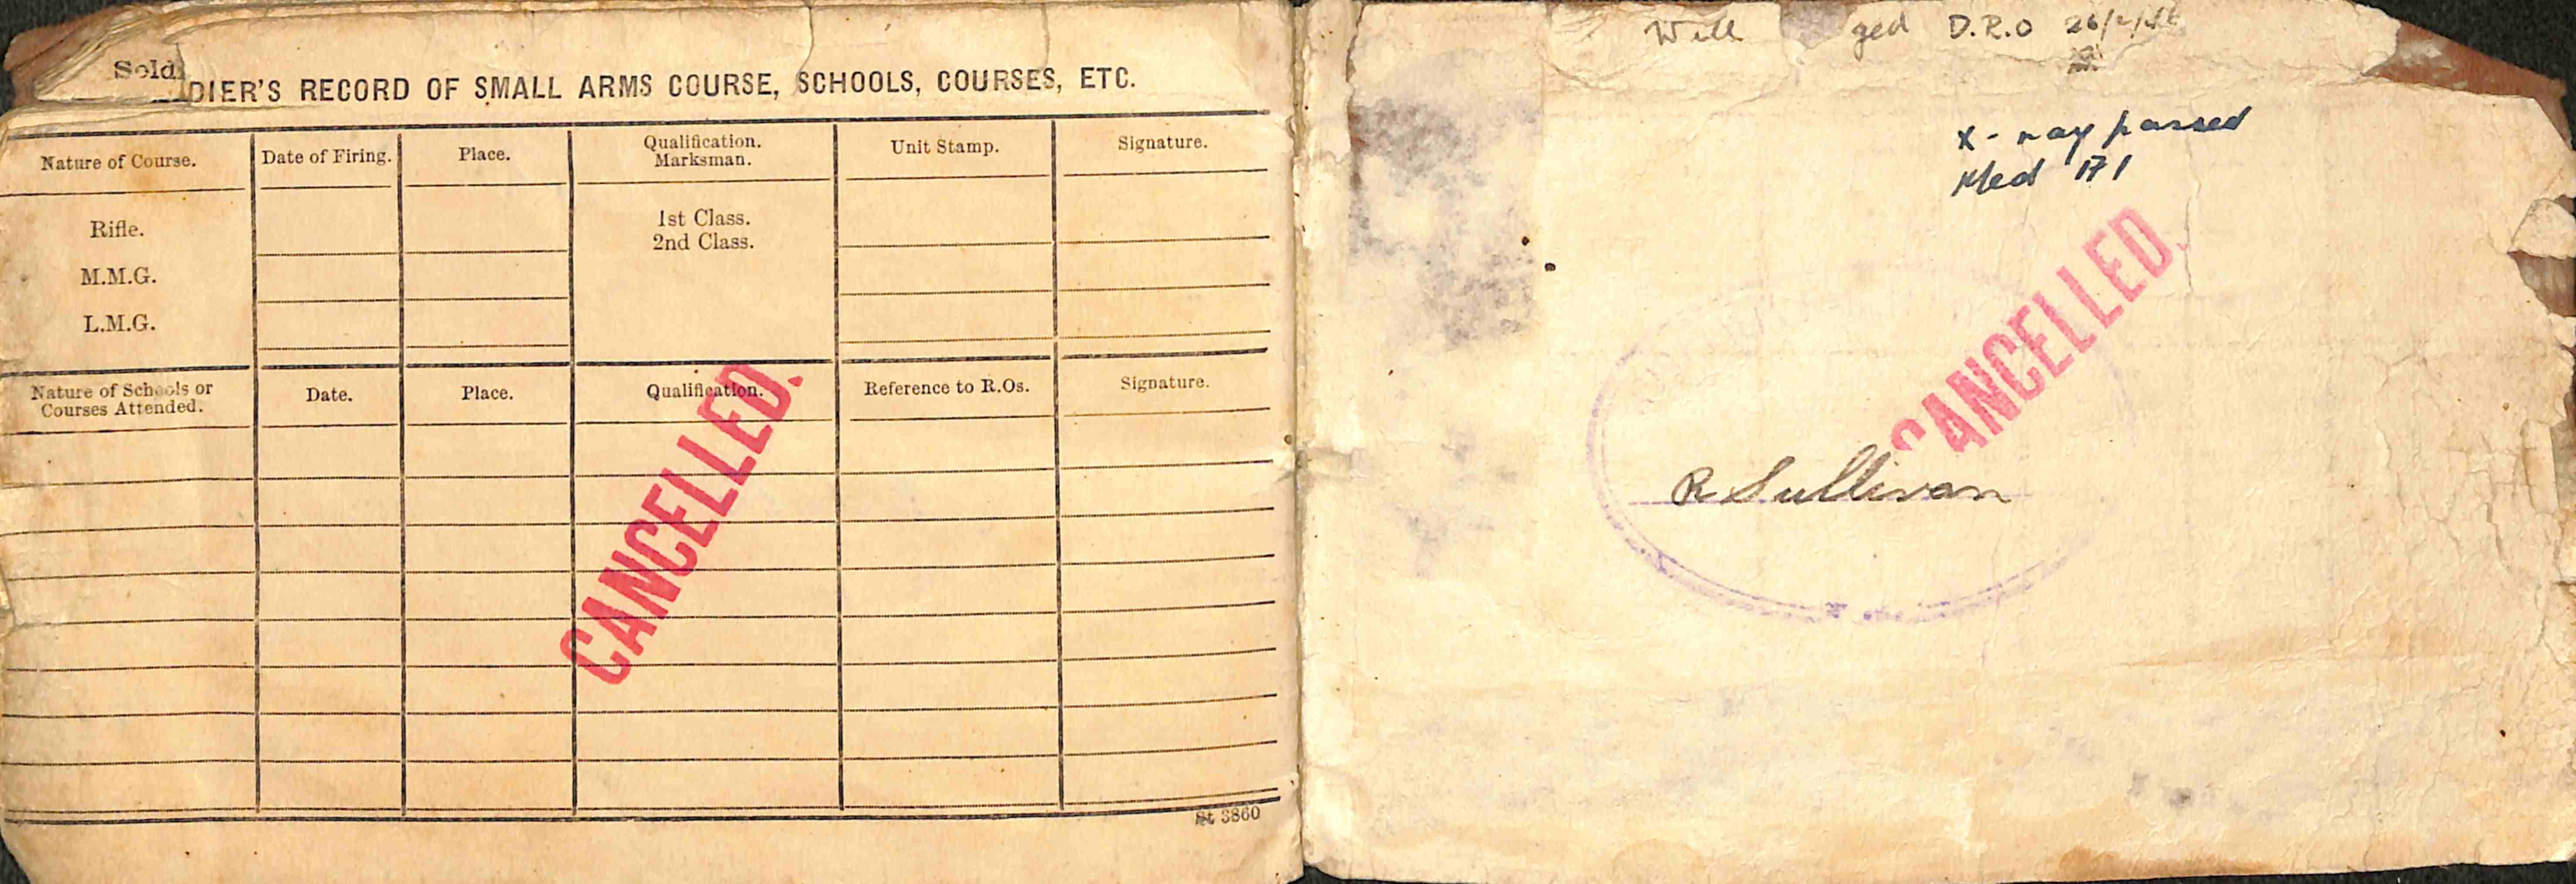 Sold
DIER'S RECORD OF SMALL ARMS COURSE, SCHOOLS, COURSES, ETC.
Nature of Course. Date of Firing. Place. Qualification. Marksman. Unit Stamp. Signature.
Rifle. 1st Class.
2nd Class.
M.M.G.
L.M.G.
Nature of Schools or Courses Attended. Date. Place. Qualification. Reference to R.Os. Signature.
CANCELLED.
St 3860
Will ged D.R.O
X-ray passed
Med A1
CANCELLED.
R Sullivan